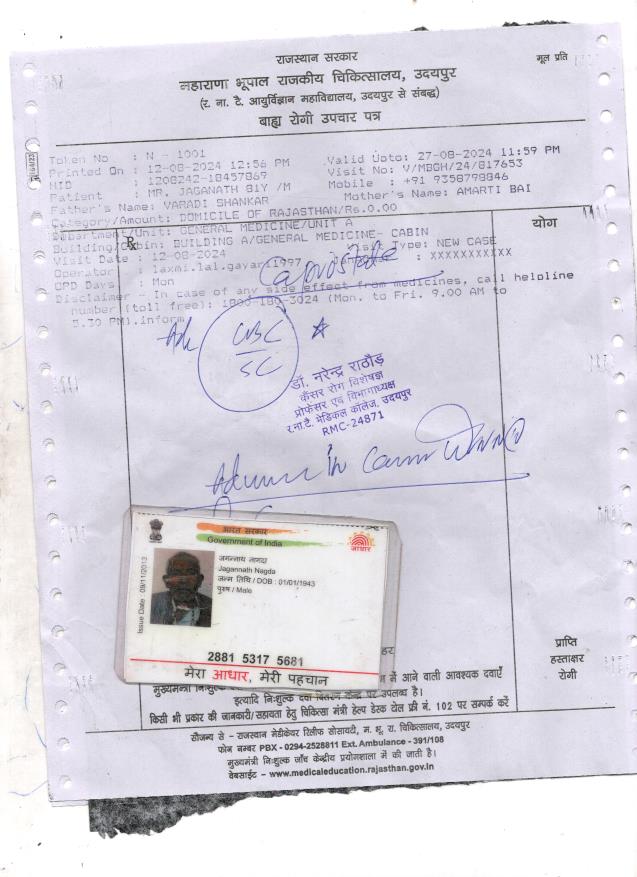 राजस्थान सरकार
मूल प्रति
महाराणा भूपाल राजकीय चिकित्सालय, उदयपुर
(र. ना. टै. आयुर्विज्ञान महाविद्यालय, उदयपुर से संबद्ध)
बाह्य रोगी उपचार पत्र
Token No : N - 1001
Printed On : 12-08-2024 12:56 PM Valid Upto: 27-08-2024 11:59 PM
HID : 1208242-18457869 Visit No: V/MBGH/24/817653
Patient : MR. JAGANATH 81Y /M Mobile : +91 9358798846
Father's Name: VARADI SHANKAR Mother's Name: AMARTI BAI
Category/Amount: DOMICILE OF RAJASTHAN/Rs.0.00
Department/Unit: GENERAL MEDICINE/UNIT A
योग
Rx
Building/Cabin: BUILDING A/GENERAL MEDICINE- CABIN
Visit Date : 12-08-2024 Visit Type: NEW CASE
Operator : laxmi.lal.gayari1997 : XXXXXXXXXXX
OPD Days : Mon
Disclaimer - In case of any side effect from medicines, call helpline
number (toll free): 1800-180-3024 (Mon. to Fri. 9.00 AM to
5.30 PM).inform
Adv CBC
SC
डॉ. नरेन्द्र राठौड़
कैंसर रोग विशेषज्ञ
प्रोफेसर एवं विभागाध्यक्ष
र.ना.टै. मेडिकल कॉलेज, उदयपुर
RMC-24871
in
भारत सरकार
Government of India
आधार
Issue Date : 09/11/2013
जगन्नाथ नागदा
Jagannath Nagda
जन्म तिथि / DOB : 01/01/1943
पुरुष / Male
2881 5317 5681
मेरा आधार, मेरी पहचान
प्राप्ति
हस्ताक्षर
रोगी
में आने वाली आवश्यक दवाएँ
मुख्यमन्त्री
इत्यादि निःशुल्क दवा वितरण केन्द्र पर उपलब्ध है।
किसी भी प्रकार की जानकारी/सहायता हेतु चिकित्सा मंत्री हेल्प डेस्क टोल फ्री नं. 102 पर सम्पर्क करें
सौजन्य से - राजस्थान मेडीकेयर रिलीफ सोसायटी, म. भू. रा. चिकित्सालय, उदयपुर
फोन नम्बर PBX - 0294-2528811 Ext. Ambulance - 391/108
मुख्यमंत्री निःशुल्क जाँच केन्द्रीय प्रयोगशाला में की जाती है।
वेबसाईट - www.medicaleducation.rajasthan.gov.in